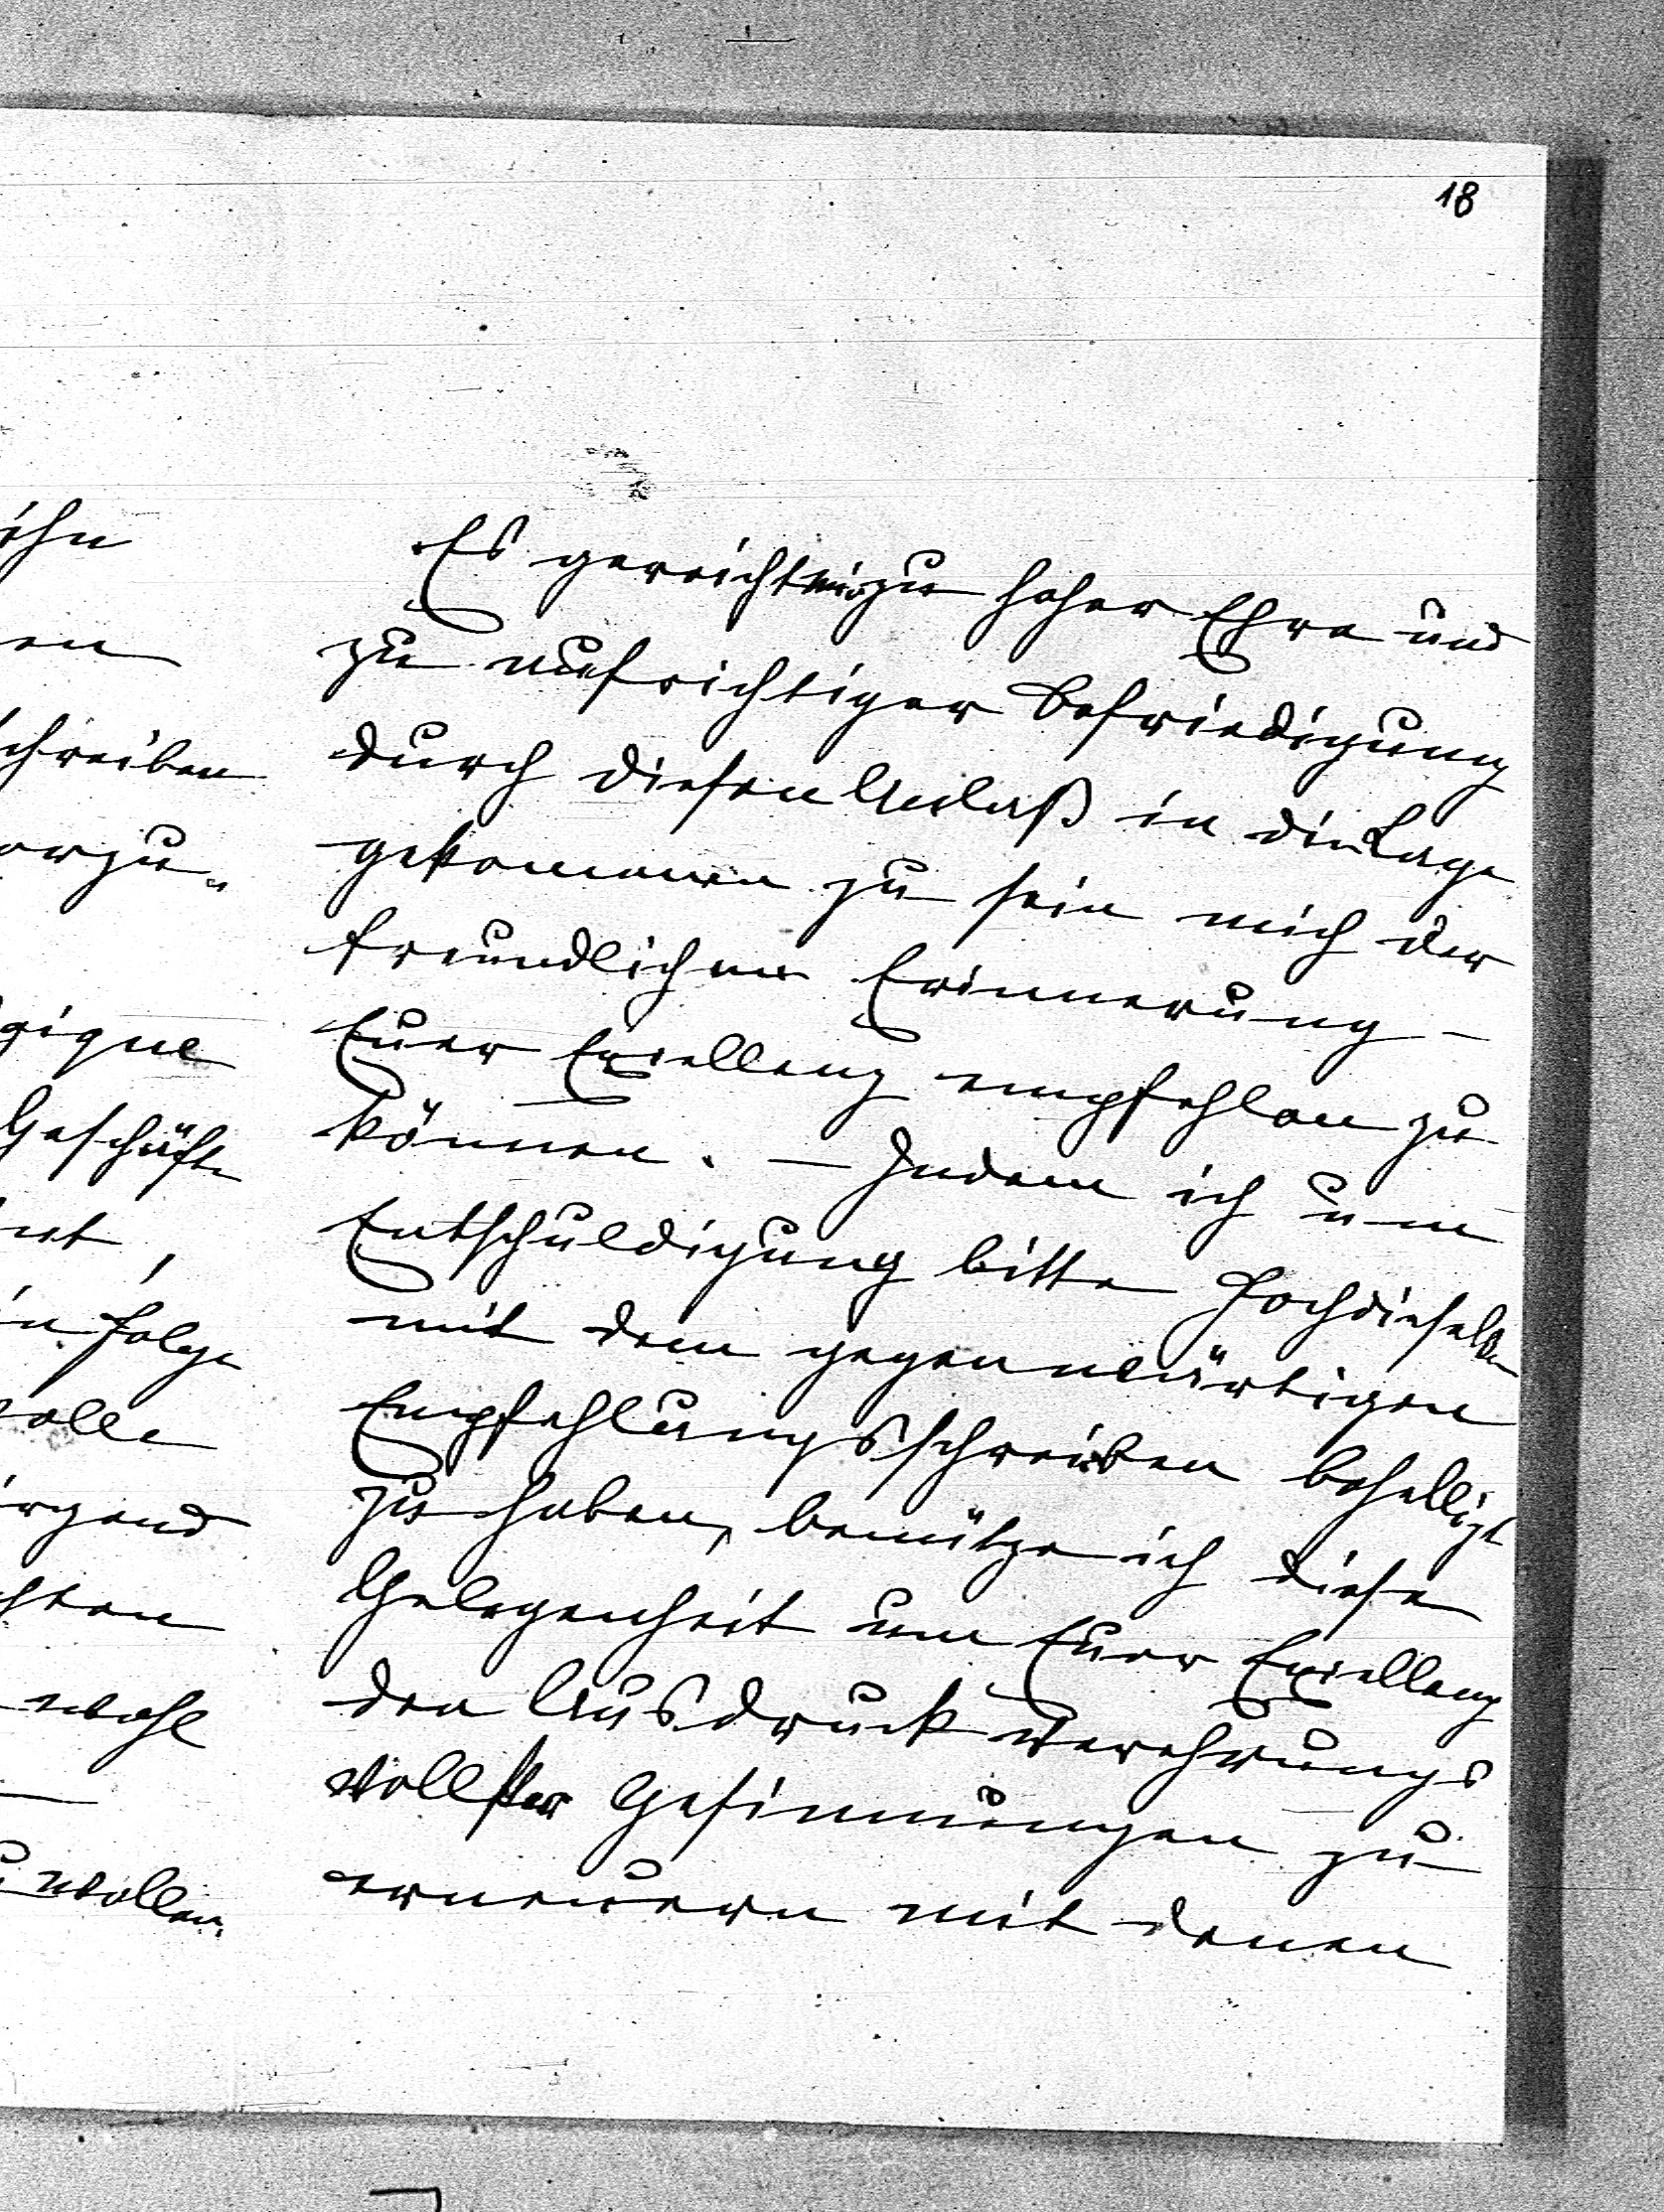 18
ihn
en
schreiben
orzu„
gique
Geschäfte
et,
in Folge
volle
irgend
wohl
u wollen.
Es gereicht mir zu hoher Ehre und
zu aufrichtiger Befriedigung
durch diesen Anlaß in die Lage
gekommen zu sein mich der
freundlichen Erinnerung –
Euer Exzellenz empfehlen zu
können. – Indem ich um
Entschuldigung bitte Hochdieselben
mit dem gegenwärtigen
Empfehlungsschreiben behelligt
zu haben, benütze ich diese
Gelegenheit um Euer Exzellenz
den Ausdruck verehrungs
vollster Gesinnungen zu
erneuern mit denen